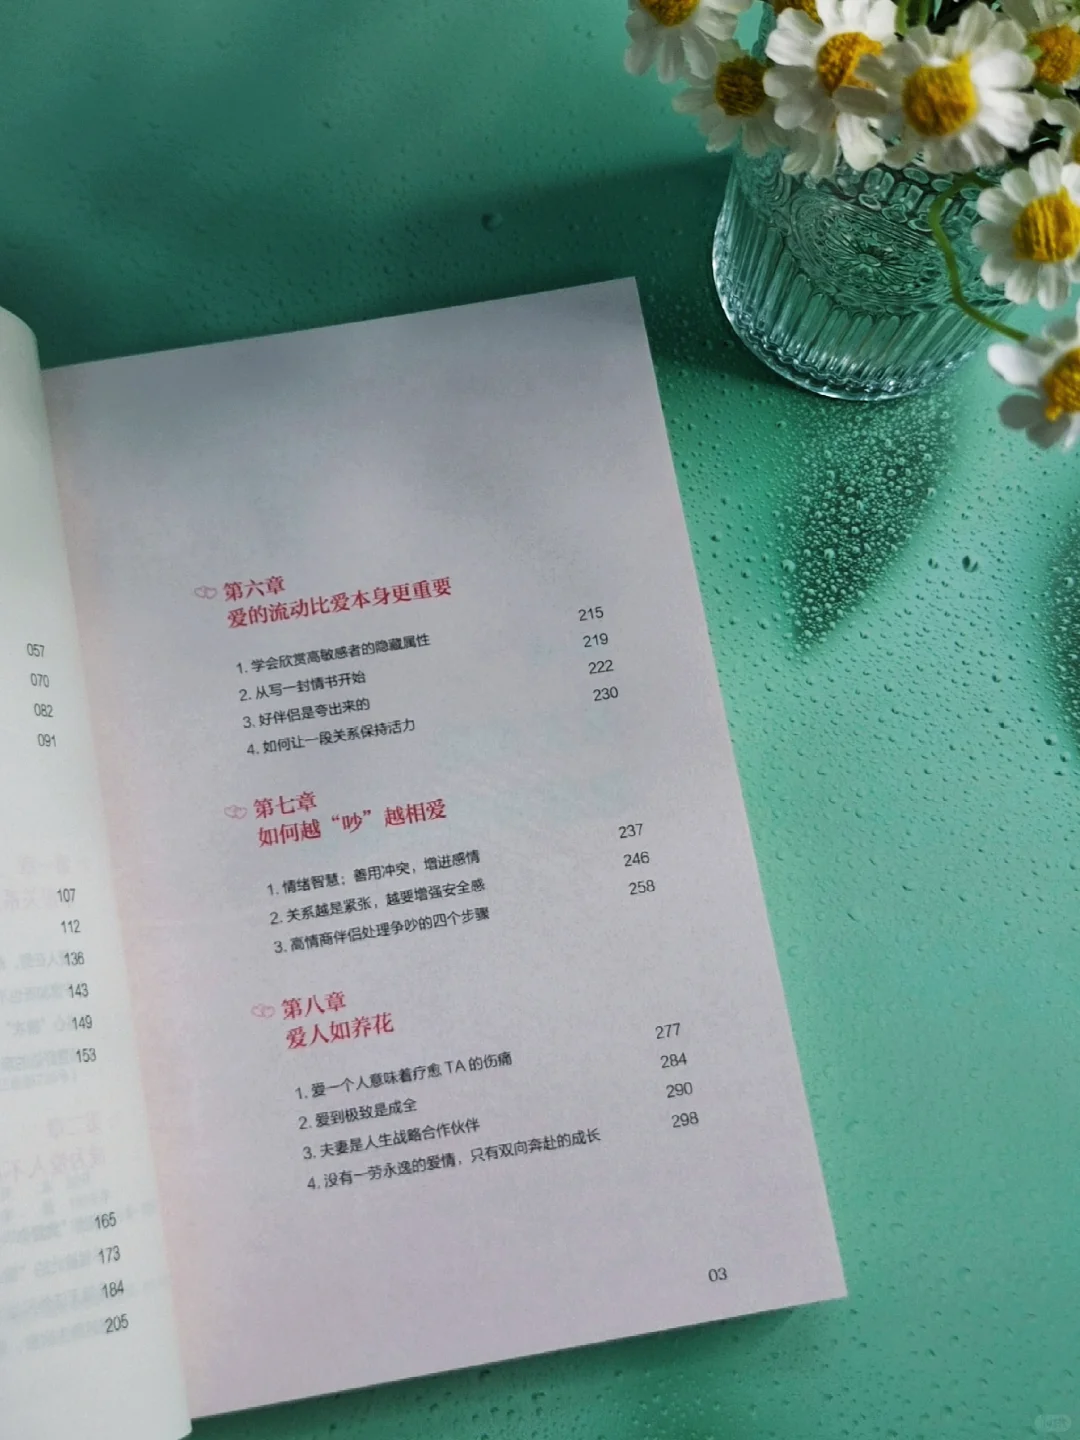 057
070
082
091
107
112
136
143
149
153
165
173
184
205
第六章
爱的流动比爱本身更重要
1. 学会欣赏高敏感者的隐藏属性 215
2. 从写一封情书开始 219
3. 好伴侣是夸出来的 222
4. 如何让一段关系保持活力 230
第七章
如何越“吵”越相爱
1. 情绪智慧：善用冲突，增进感情 237
2. 关系越是紧张，越要增强安全感 246
3. 高情商伴侣处理争吵的四个步骤 258
第八章
爱人如养花
1. 爱一个人意味着疗愈 TA 的伤痛 277
2. 爱到极致是成全 284
3. 夫妻是人生战略合作伙伴 290
4. 没有一劳永逸的爱情，只有双向奔赴的成长 298
03